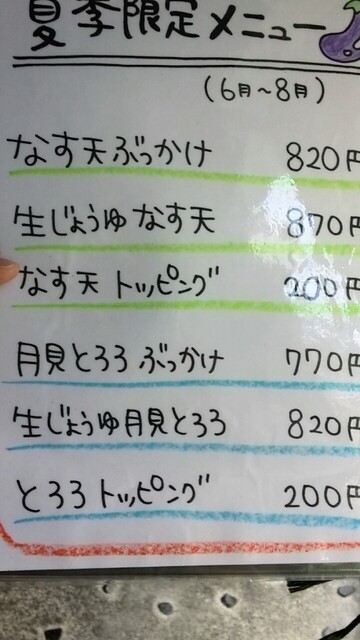 夏季限定メニュー
（6月～8月）
なす天ぶっかけ 820円
生じょうゆなす天 870円
なす天トッピング 200円
月見とろろぶっかけ 770円
生じょうゆ月見とろろ 820円
とろろトッピング 200円